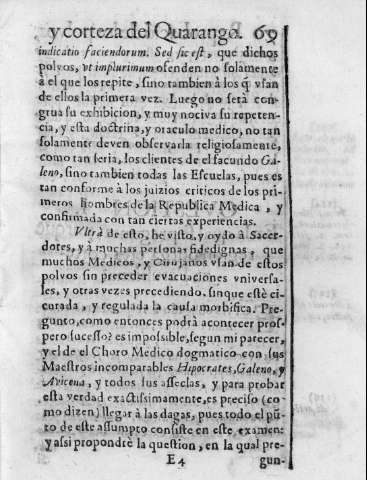 y corteza del Quarango. 69
indicatio faciendorum. Sed sic est, que dichos
polvos, vt implurimum ofenden no solamente
à el que los repite, sino tambien à los q̃ vsan
de ellos la primera vez. Luego no serà con
grua su exhibicion, y muy nociva su repeten-
cia, y esta doctrina, y oraculo medico, no tan
solamente deven observarla religiosamente,
como tan seria, los clientes de el facundo Ga-
leno, sino tambien todas las Escuelas, pues es
tan conforme à los juizios criticos de los pri-
meros hombres de la Republica Medica, y
confirmada con tan ciertas experiencias.
Vltrà de esto, he visto, y oydo à Sacer-
dotes, y à muchas personas fidedignas, que
muchos Medicos, y Cirujanos vsan de estos
polvos sin preceder evacuaciones vniversa-
les, y otras vezes precediendo, sin que estè ci-
curada, y regulada la causa morbifica. Pre-
gunto, como entonces podrà acontecer pros-
pero sucesso? es impossible, segun mi parecer,
y el de el Choro Medico dogmatico con sus
Maestros incomparables Hipocrates, Galeno, y
Avicena, y todos sus asseclas, y para probar
esta verdad exactissimamente, es preciso (co-
mo dizen) llegar à las dagas, pues todo el pũ-
to de este assumpto consiste en este examen:
y assi propondrè la question, en la qual pre-
E4 gun-